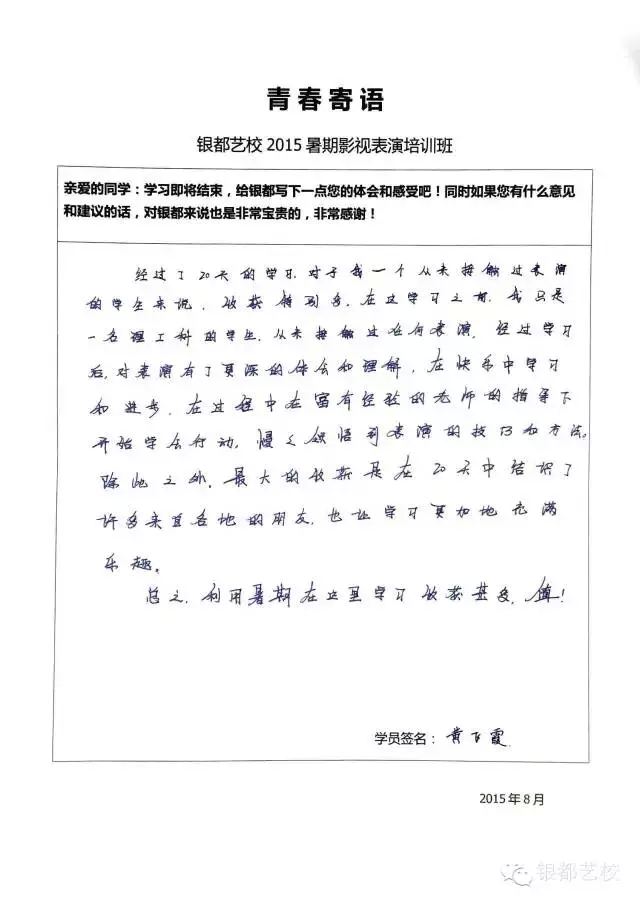 青春寄语
银都艺校2015暑期影视表演培训班
亲爱的同学：学习即将结束，给银都写下一点您的体会和感受吧！同时如果您有什么意见
和建议的话，对银都来说也是非常宝贵的，非常感谢！
经过了20天的学习，对于我一个从未接触过表演
的学生来说，收获特别多，在这学习之前，我只是
一名理工科的学生，从未接触过任何表演，经过学习
后，对表演有了更深的体会和理解，在快乐中学习
和进步，在过程中在富有经验的老师的指导下
开始学会行动，慢慢领悟到表演的技巧和方法。
除此之外，最大的收获是在20天中结识了
许多来自各地的朋友，也让学习更加地充满
乐趣。
总之，利用暑期在这里学习收获甚多，值！
学员签名：黄 霞
2015年8月
银都艺校